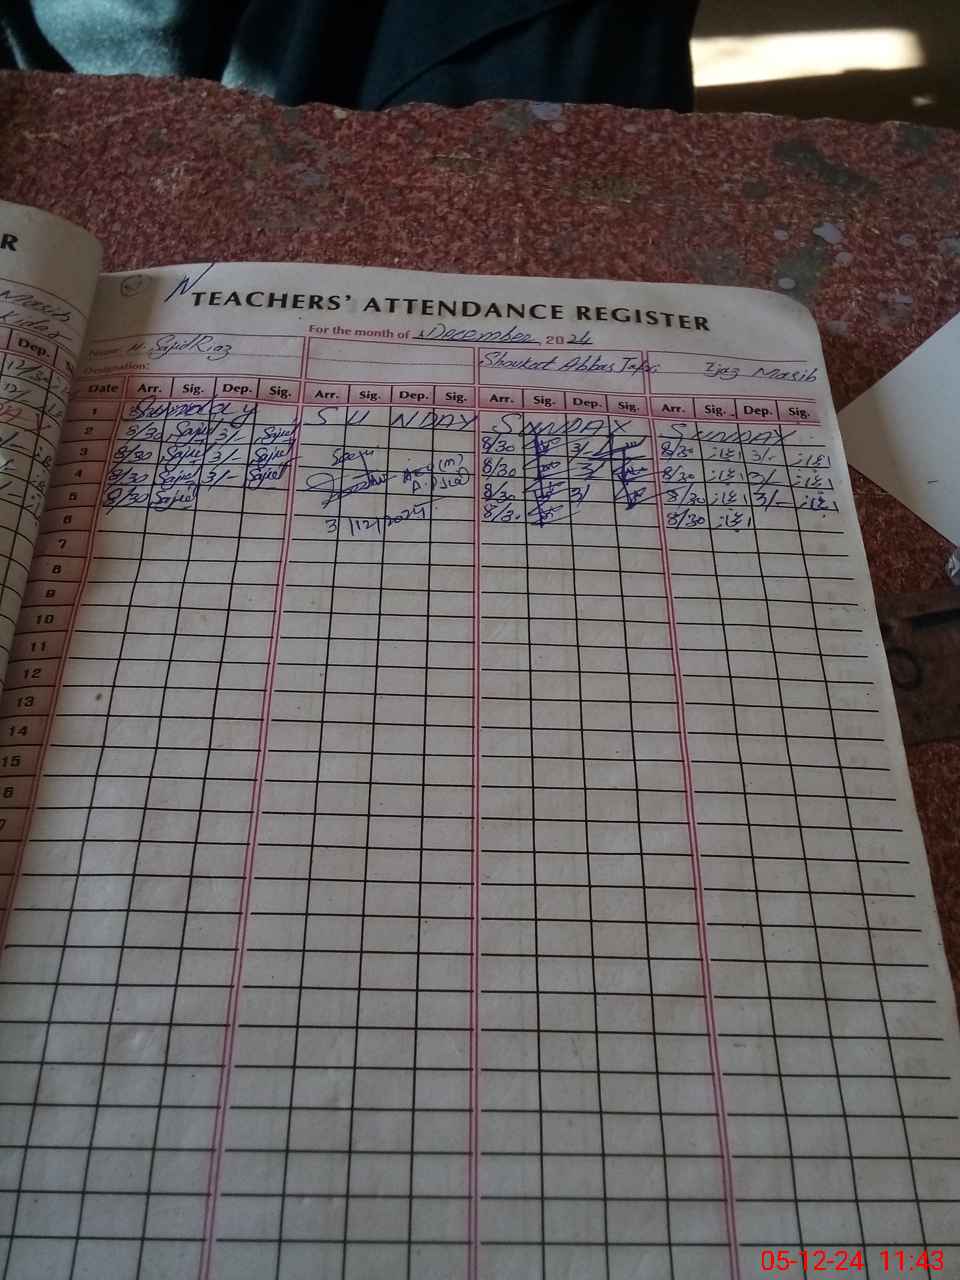 R
TEACHERS' ATTENDANCE REGISTER
For the month of December 2024
Name M. Sajid Riaz
Shoukat Abbas
Ijaz Masih
Designation:
Dep.
Date Arr. Sig. Dep. Sig. Arr. Sig. Dep. Sig. Arr. Sig. Dep. Sig. Arr. Sig. Dep. Sig.
1 Sunday SUNDAY SUNDAY SUNDAY
2 8/30 Sajid 3/- Sajid 8/30 3/- 8/30 اعجاز 3/- اعجاز
3 8/30 Sajid 3/- Sajid 8/30 3/ 8/30 اعجاز 3/- اعجاز
4 8/30 Sajid 3/- Sajid 8/30 3/ 8/30 اعجاز 3/- اعجاز
5 8/30 Sajid 3/12/2024 8/30 8/30 اعجاز
6
7
8
9
10
11
12
13
14
15
05-12-24 11:43